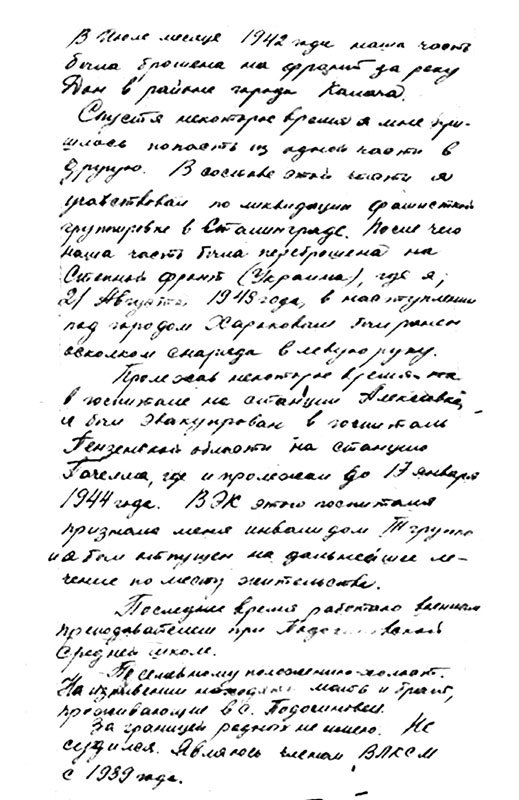 В Июле месяце 1942 года наша часть
была брошена на фронт за реку
Дон в районе города Калача.
Спустя некоторое время мне при-
шлось попасть из одной части в
другую. В составе этой части я
участвовал по ликвидации фашистской
группировке в Сталинграде. После чего
наша часть была переброшена на
Степной фронт (Украина), где я,
21 Августа 1943 года, в наступлении
под городом Харьковом был ранен
осколком снаряда в левую руку.
Пролежав некоторое время на
в госпитале на станции Алексеевка,
я был эвакуирован в госпиталь
Пензенской области на станцию
Пачелма, где и пролежал до 17 января
1944 года. ВЭК этого госпиталя
признала меня инвалидом III группы
и я был отпущен на дальнейшее ле-
чение по месту жительства.
Последнее время работаю военным
преподавателем при
средней школе.
По семейному положению-холост.
На иждивении находятся мать и братья,
проживающие в с. Подосиновец.
За границей родных не имею. Не
судился. Являюсь членом ВЛКСМ
с 1939 года.